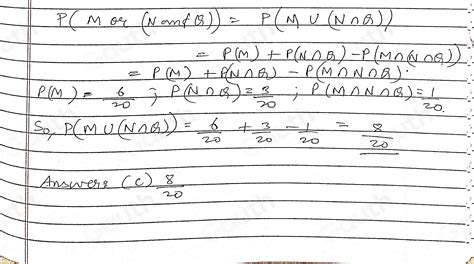 P(M or (N and Q)) = P(M ∪ (N∩Q))
= P(M) + P(N∩Q) - P(M∩(N∩Q))
= P(M) + P(N∩Q) - P(M∩N∩Q).
P(M) = 6/20 ; P(N∩Q) = 3/20 ; P(M∩N∩Q) = 1/20.
So, P(M∪(N∩Q)) = 6/20 + 3/20 - 1/20 = 8/20
Answer: (C) 8/20